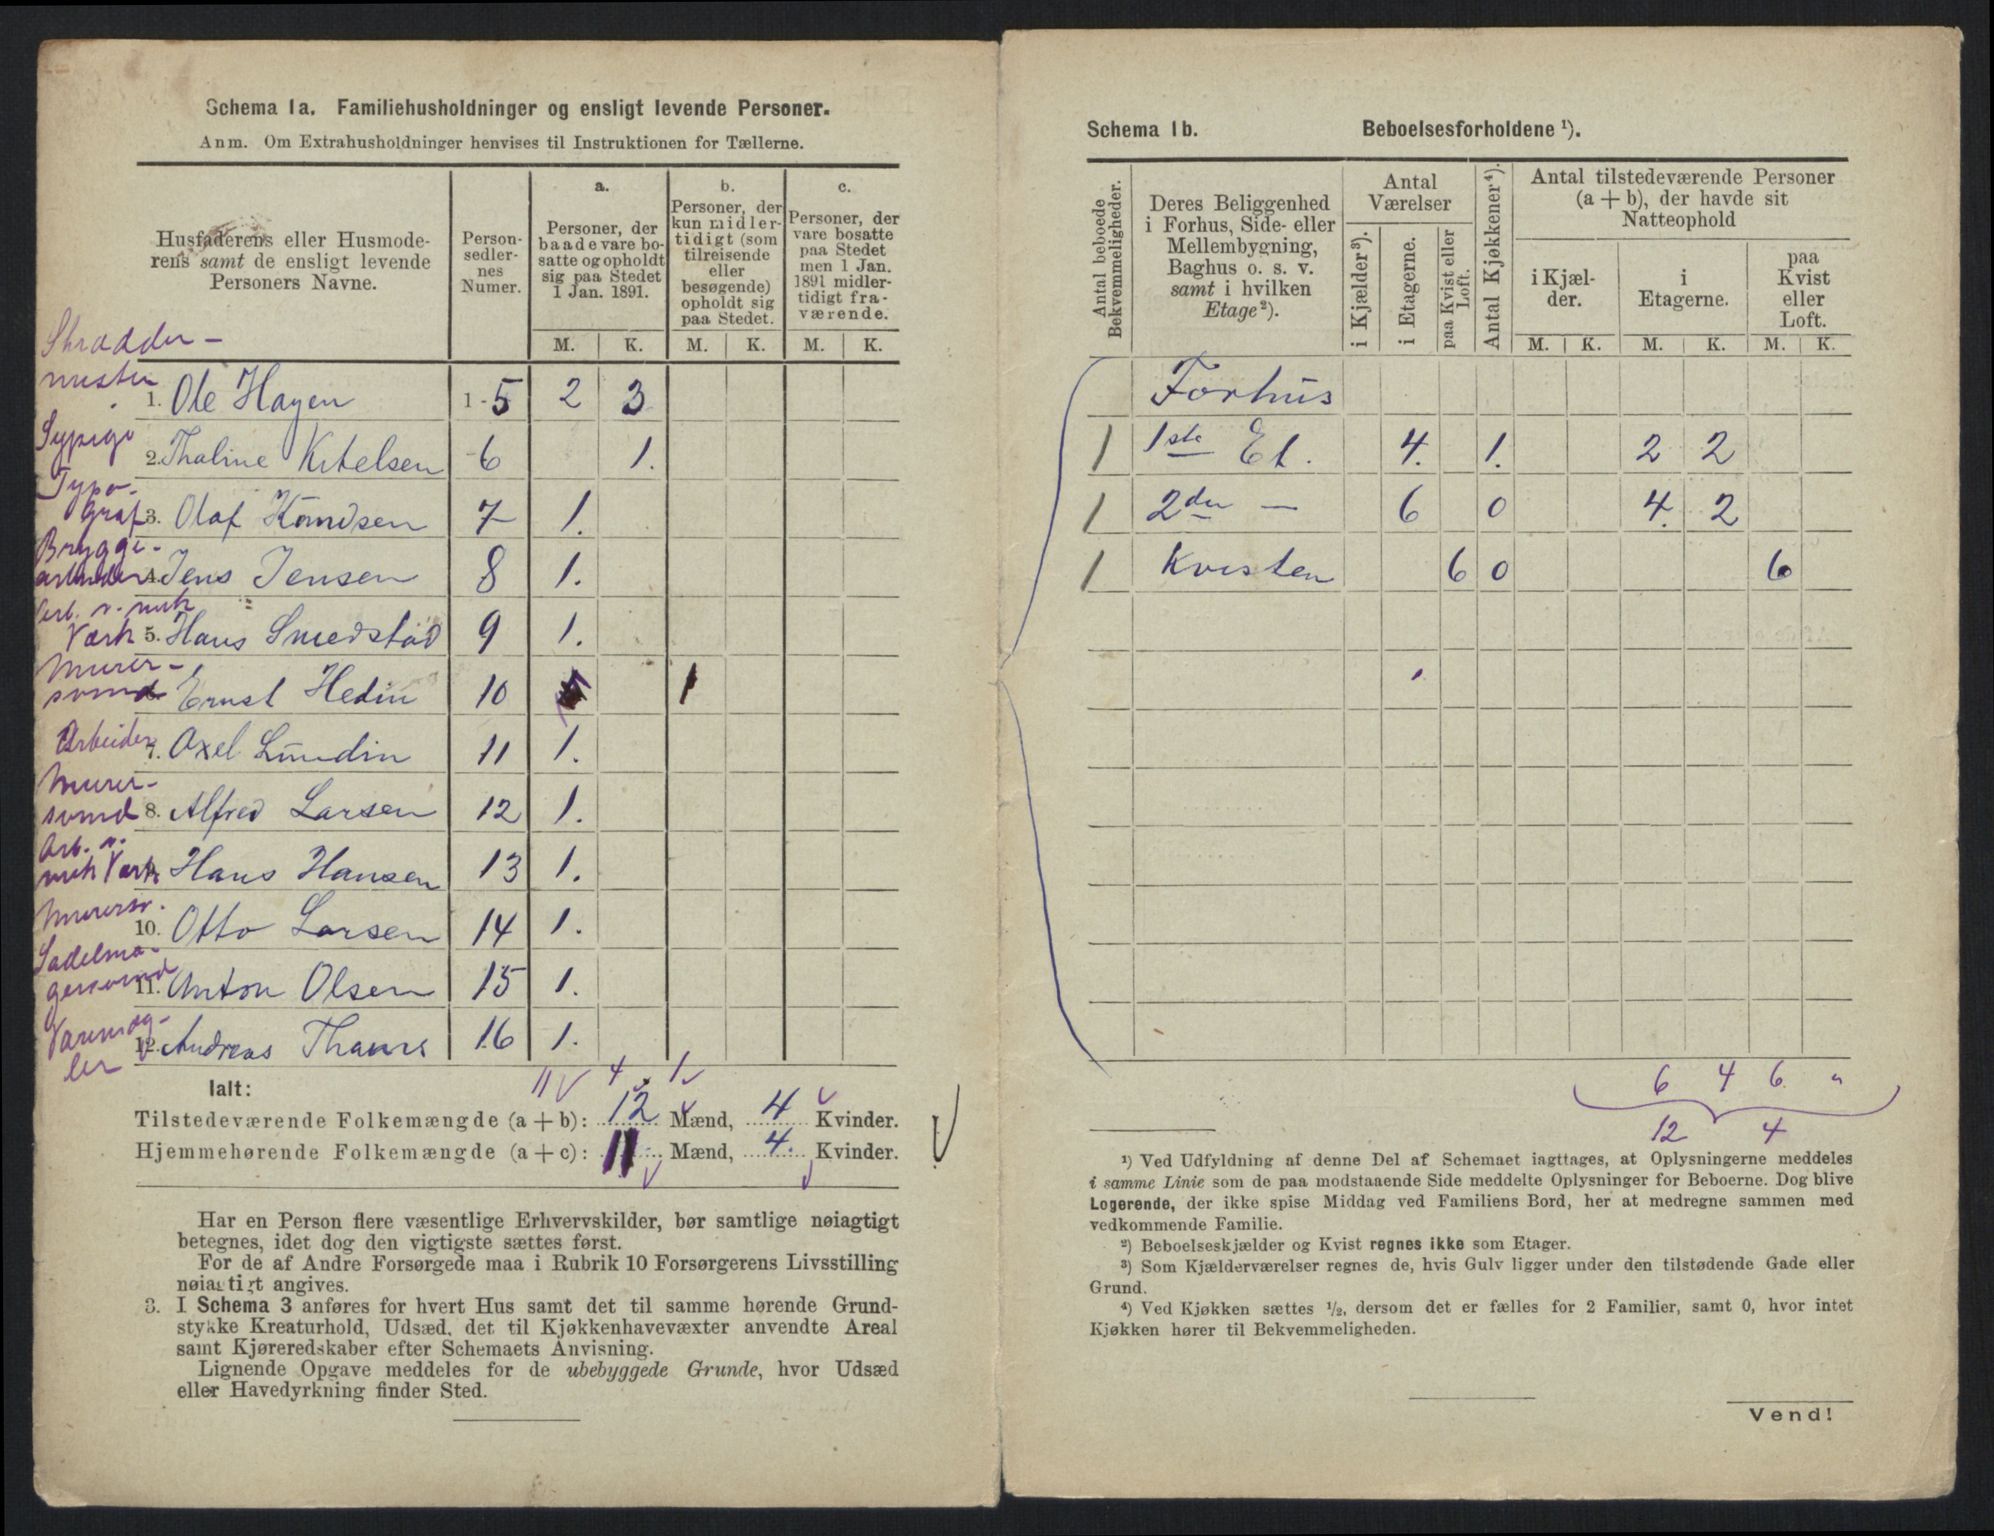 Schema 1a. Familiehusholdninger og ensligt levende Personer.
Anm. Om Extrahusholdninger henvises til Instruktionen for Tællerne.
Husfaderens eller Husmoderens samt de ensligt levende Personers Navne.
Personsedlernes Numer.
a. Personer, der baade vare bosatte og opholdt sig paa Stedet 1 Jan. 1891.
b. Personer, der kun midlertidigt (som tilreisende eller besøgende) opholdt sig paa Stedet.
c. Personer, der vare bosatte paa Stedet men 1 Jan. 1891 midlertidigt fraværende.
M. K. M. K. M. K.
Skrædder-
mester
1. Ole Hagen 1-5 2 3
Sypige
2. Thaline Kitelsen -6 1.
Typo-
graf
3. Olaf Knudsen 7 1.
Brygge-
arbeider
4. Jens Jensen 8 1.
Arb. v. mek
Værk
5. Hans Smedstad 9 1.
Murer-
svend
6. Ernst Hedin 10 1
Arbeider
7. Axel Lundin 11 1.
Murer-
svend
8. Alfred Larsen 12 1.
Arb. v.
mek Værk
9. Hans Hansen 13 1.
Murersv.
10. Otto Larsen 14 1.
Sadelma-
gersvend
11. Anton Olsen 15 1.
Varemæg-
ler
12. Andreas Thams 16 1.
11 4 1
Ialt:
Tilstedeværende Folkemængde (a + b): 12 Mænd, 4 Kvinder.
Hjemmehørende Folkemængde (a + c): 11 Mænd, 4. Kvinder.
Har en Person flere væsentlige Erhvervskilder, bør samtlige nøiagtigt
betegnes, idet dog den vigtigste sættes først.
For de af Andre Forsørgede maa i Rubrik 10 Forsørgerens Livsstilling
nøiagtigt angives.
3. I Schema 3 anføres for hvert Hus samt det til samme hørende Grund-
stykke Kreaturhold, Udsæd, det til Kjøkkenhavevæxter anvendte Areal
samt Kjøreredskaber efter Schemaets Anvisning.
Lignende Opgave meddeles for de ubebyggede Grunde, hvor Udsæd
eller Havedyrkning finder Sted.
Schema 1b. Beboelsesforholdene ¹).
Antal beboede Bekvemmeligheder.
Deres Beliggenhed i Forhus, Side- eller Mellembygning, Baghus o. s. v. samt i hvilken Etage²).
Antal Værelser
i Kjælder³).
i Etagerne.
paa Kvist eller Loft.
Antal Kjøkkener⁴).
Antal tilstedeværende Personer (a + b), der havde sit Natteophold
i Kjælder.
i Etagerne.
paa Kvist eller Loft.
M. K. M. K. M. K.
Forhus
1 1ste Et. 4. 1. 2 2
1 2den — 6 0 4. 2
1 Kvisten 6 0 6
6 4 6 "
12 4
¹) Ved Udfyldning af denne Del af Schemaet iagttages, at Oplysningerne meddeles
i samme Linie som de paa modstaaende Side meddelte Oplysninger for Beboerne. Dog blive
Logerende, der ikke spise Middag ved Familiens Bord, her at medregne sammen med
vedkommende Familie.
²) Beboelseskjælder og Kvist regnes ikke som Etager.
³) Som Kjælderværelser regnes de, hvis Gulv ligger under den tilstødende Gade eller
Grund.
⁴) Ved Kjøkken sættes ½, dersom det er fælles for 2 Familier, samt 0, hvor intet
Kjøkken hører til Bekvemmeligheden.
Vend!